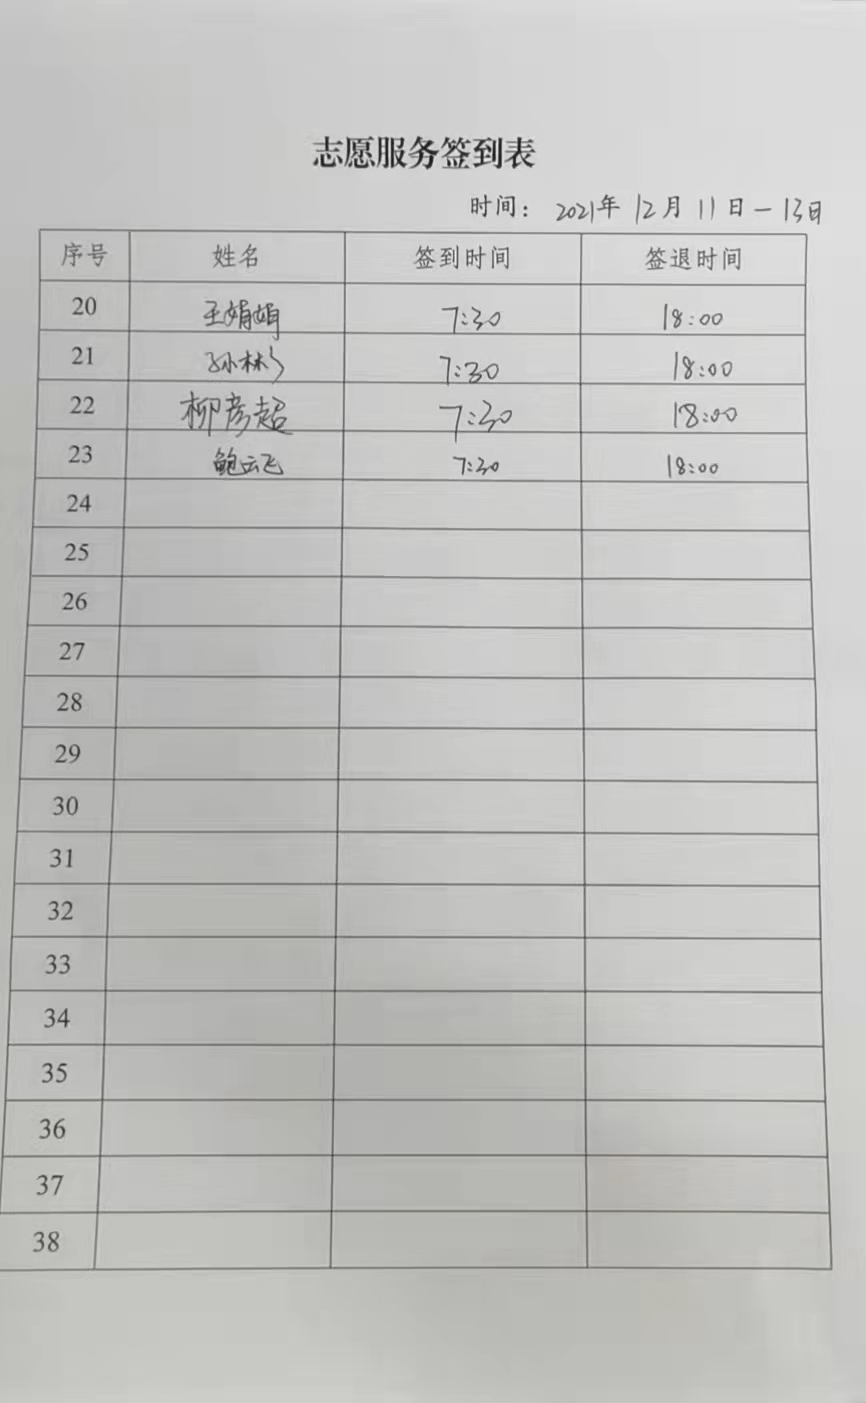 志愿服务签到表
时间: 2021年 12月 11日-13日
序号 姓名 签到时间 签退时间
20 王娟娟 7:30 18:00
21 孙林 7:30 18:00
22 柳彦超 7:30 18:00
23 鲍云飞 7:30 18:00
24
25
26
27
28
29
30
31
32
33
34
35
36
37
38